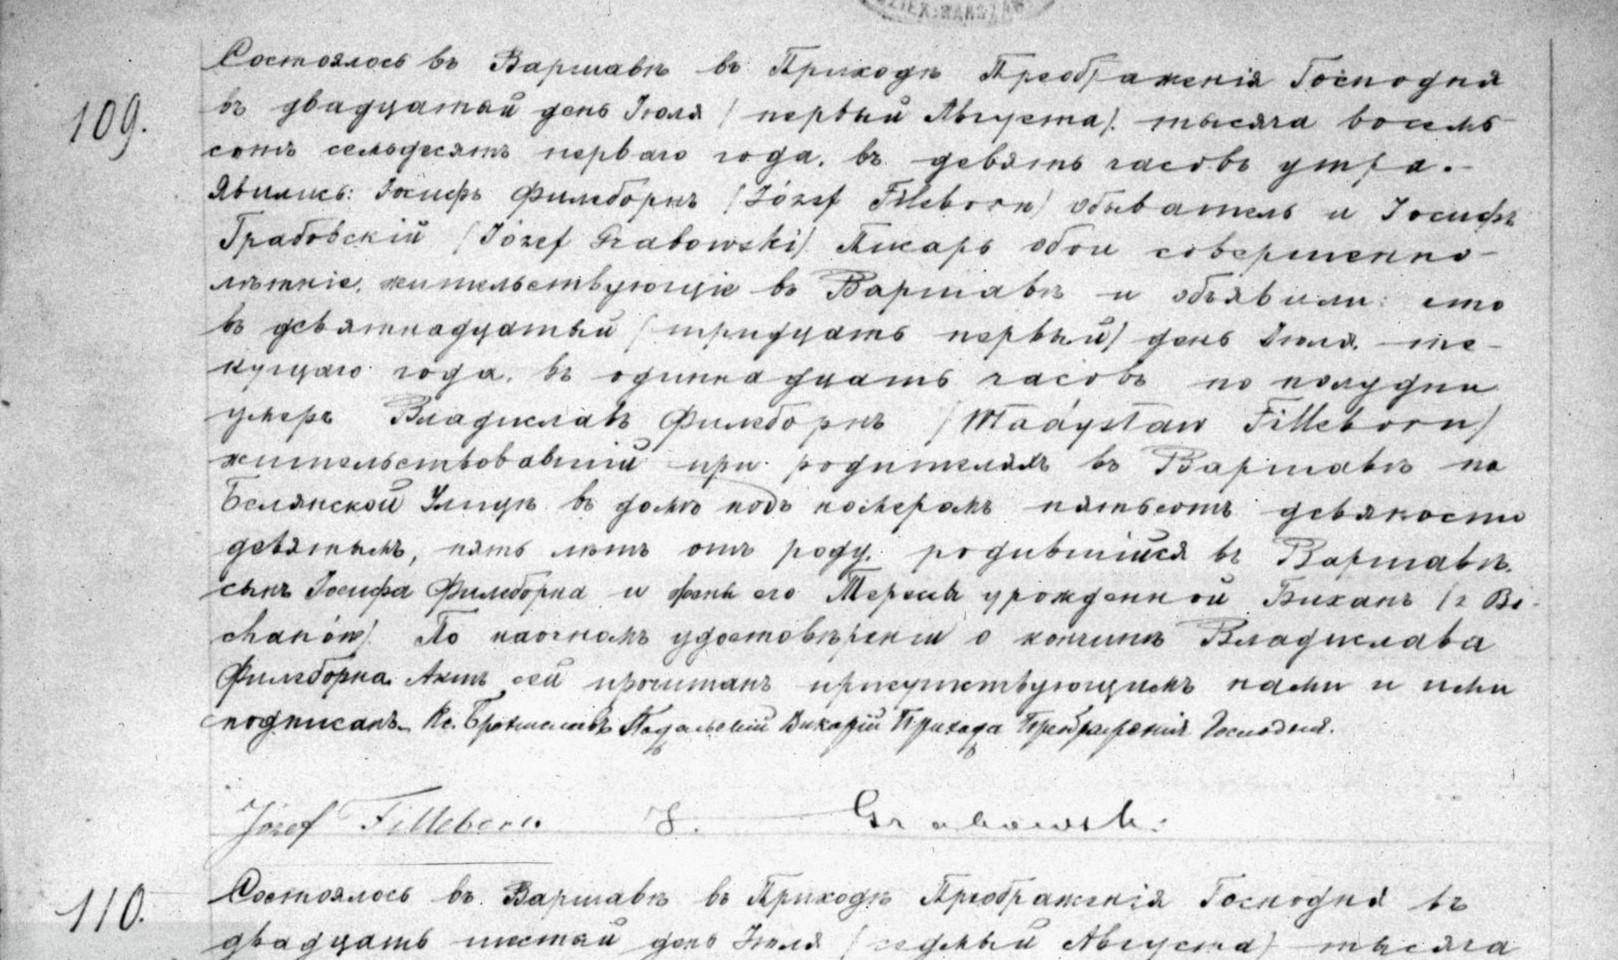 109.
Состоялось въ Варшавѣ въ Приходѣ Преображенія Господня
въ двадцатый день Іюля /первый Августа/. тысяча восемь
сотъ семьдесятъ перваго года. въ девять часовъ утра.-
Явились: Іосифъ Филеборнъ /Józef Filleborn/ обыватель и Іосифъ
Грабовскій /Józef Grabowski/ Писарь обои совершенно-
лѣтніе, жительствующіе въ Варшавѣ и объявили: что
въ девятнадцатый /тридцать первый/ день Іюля. те-
кущаго года. въ одиннадцать часовъ по полудни
умеръ Владиславъ Филеборнъ /Władysław Filleborn/
жительствовавшій при родителяхъ въ Варшавѣ по
Белянской Улицѣ въ домѣ подъ номеромъ пятьсотъ девяносто
девятымъ, пять лѣтъ отъ роду. родившійся въ Варшавѣ.
сынъ Іосифа Филеборна и жены его Тересы урожденной Биханъ /z Bi-
chanów/. По наочномъ удостовѣреніи о кончинѣ Владислава
Филеборна Актъ сей прочитанъ присутствующимъ нами и ими
подписанъ. Кс. Брониславъ Подальскій Викарій Прихода Преображенія Господня.
Józef Filleborn J. Grabowski.
110.
Состоялось въ Варшавѣ въ Приходѣ Преображенія Господня въ
двадцать шестый день Іюля /седмый Августа/ тысяча